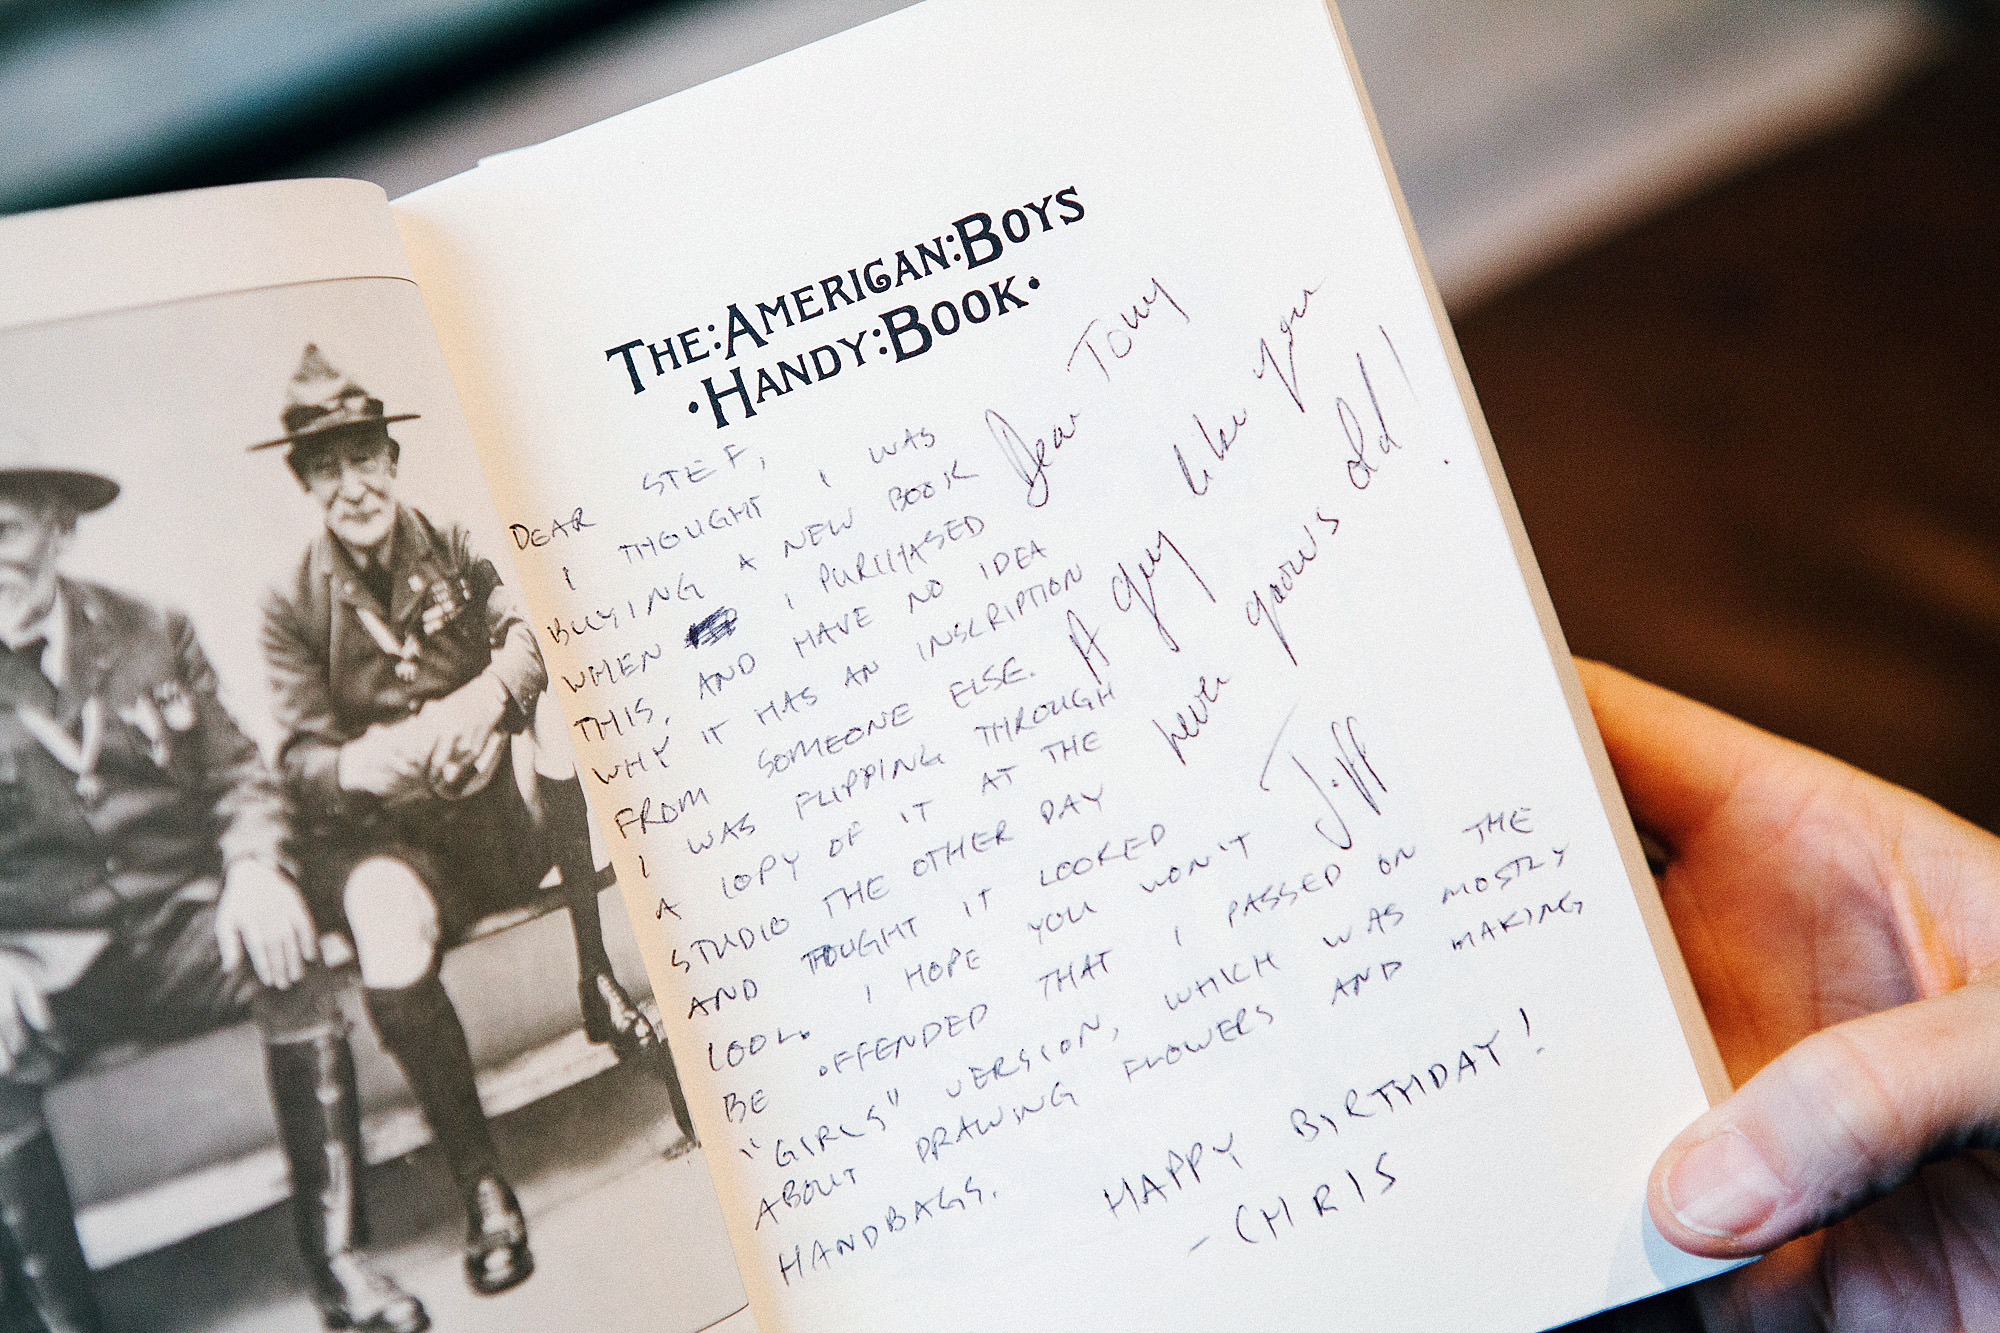 THE:AMERICAN:BOYS
·HANDY:BOOK·
DEAR STEF,
I THOUGHT I WAS
BUYING A NEW BOOK
WHEN I PURCHASED
THIS, AND HAVE NO IDEA
WHY IT HAS AN INSCRIPTION
FROM SOMEONE ELSE.
I WAS FLIPPING THROUGH
A COPY OF IT AT THE
STUDIO THE OTHER DAY
AND THOUGHT IT LOOKED
COOL. I HOPE YOU WON'T
BE OFFENDED THAT I PASSED ON THE
"GIRLS" VERSION, WHICH WAS MOSTLY
ABOUT DRAWING FLOWERS AND MAKING
HANDBAGS.
HAPPY BIRTHDAY!
-CHRIS
Dear Tony
A guy like you
never grows old!
Jiff